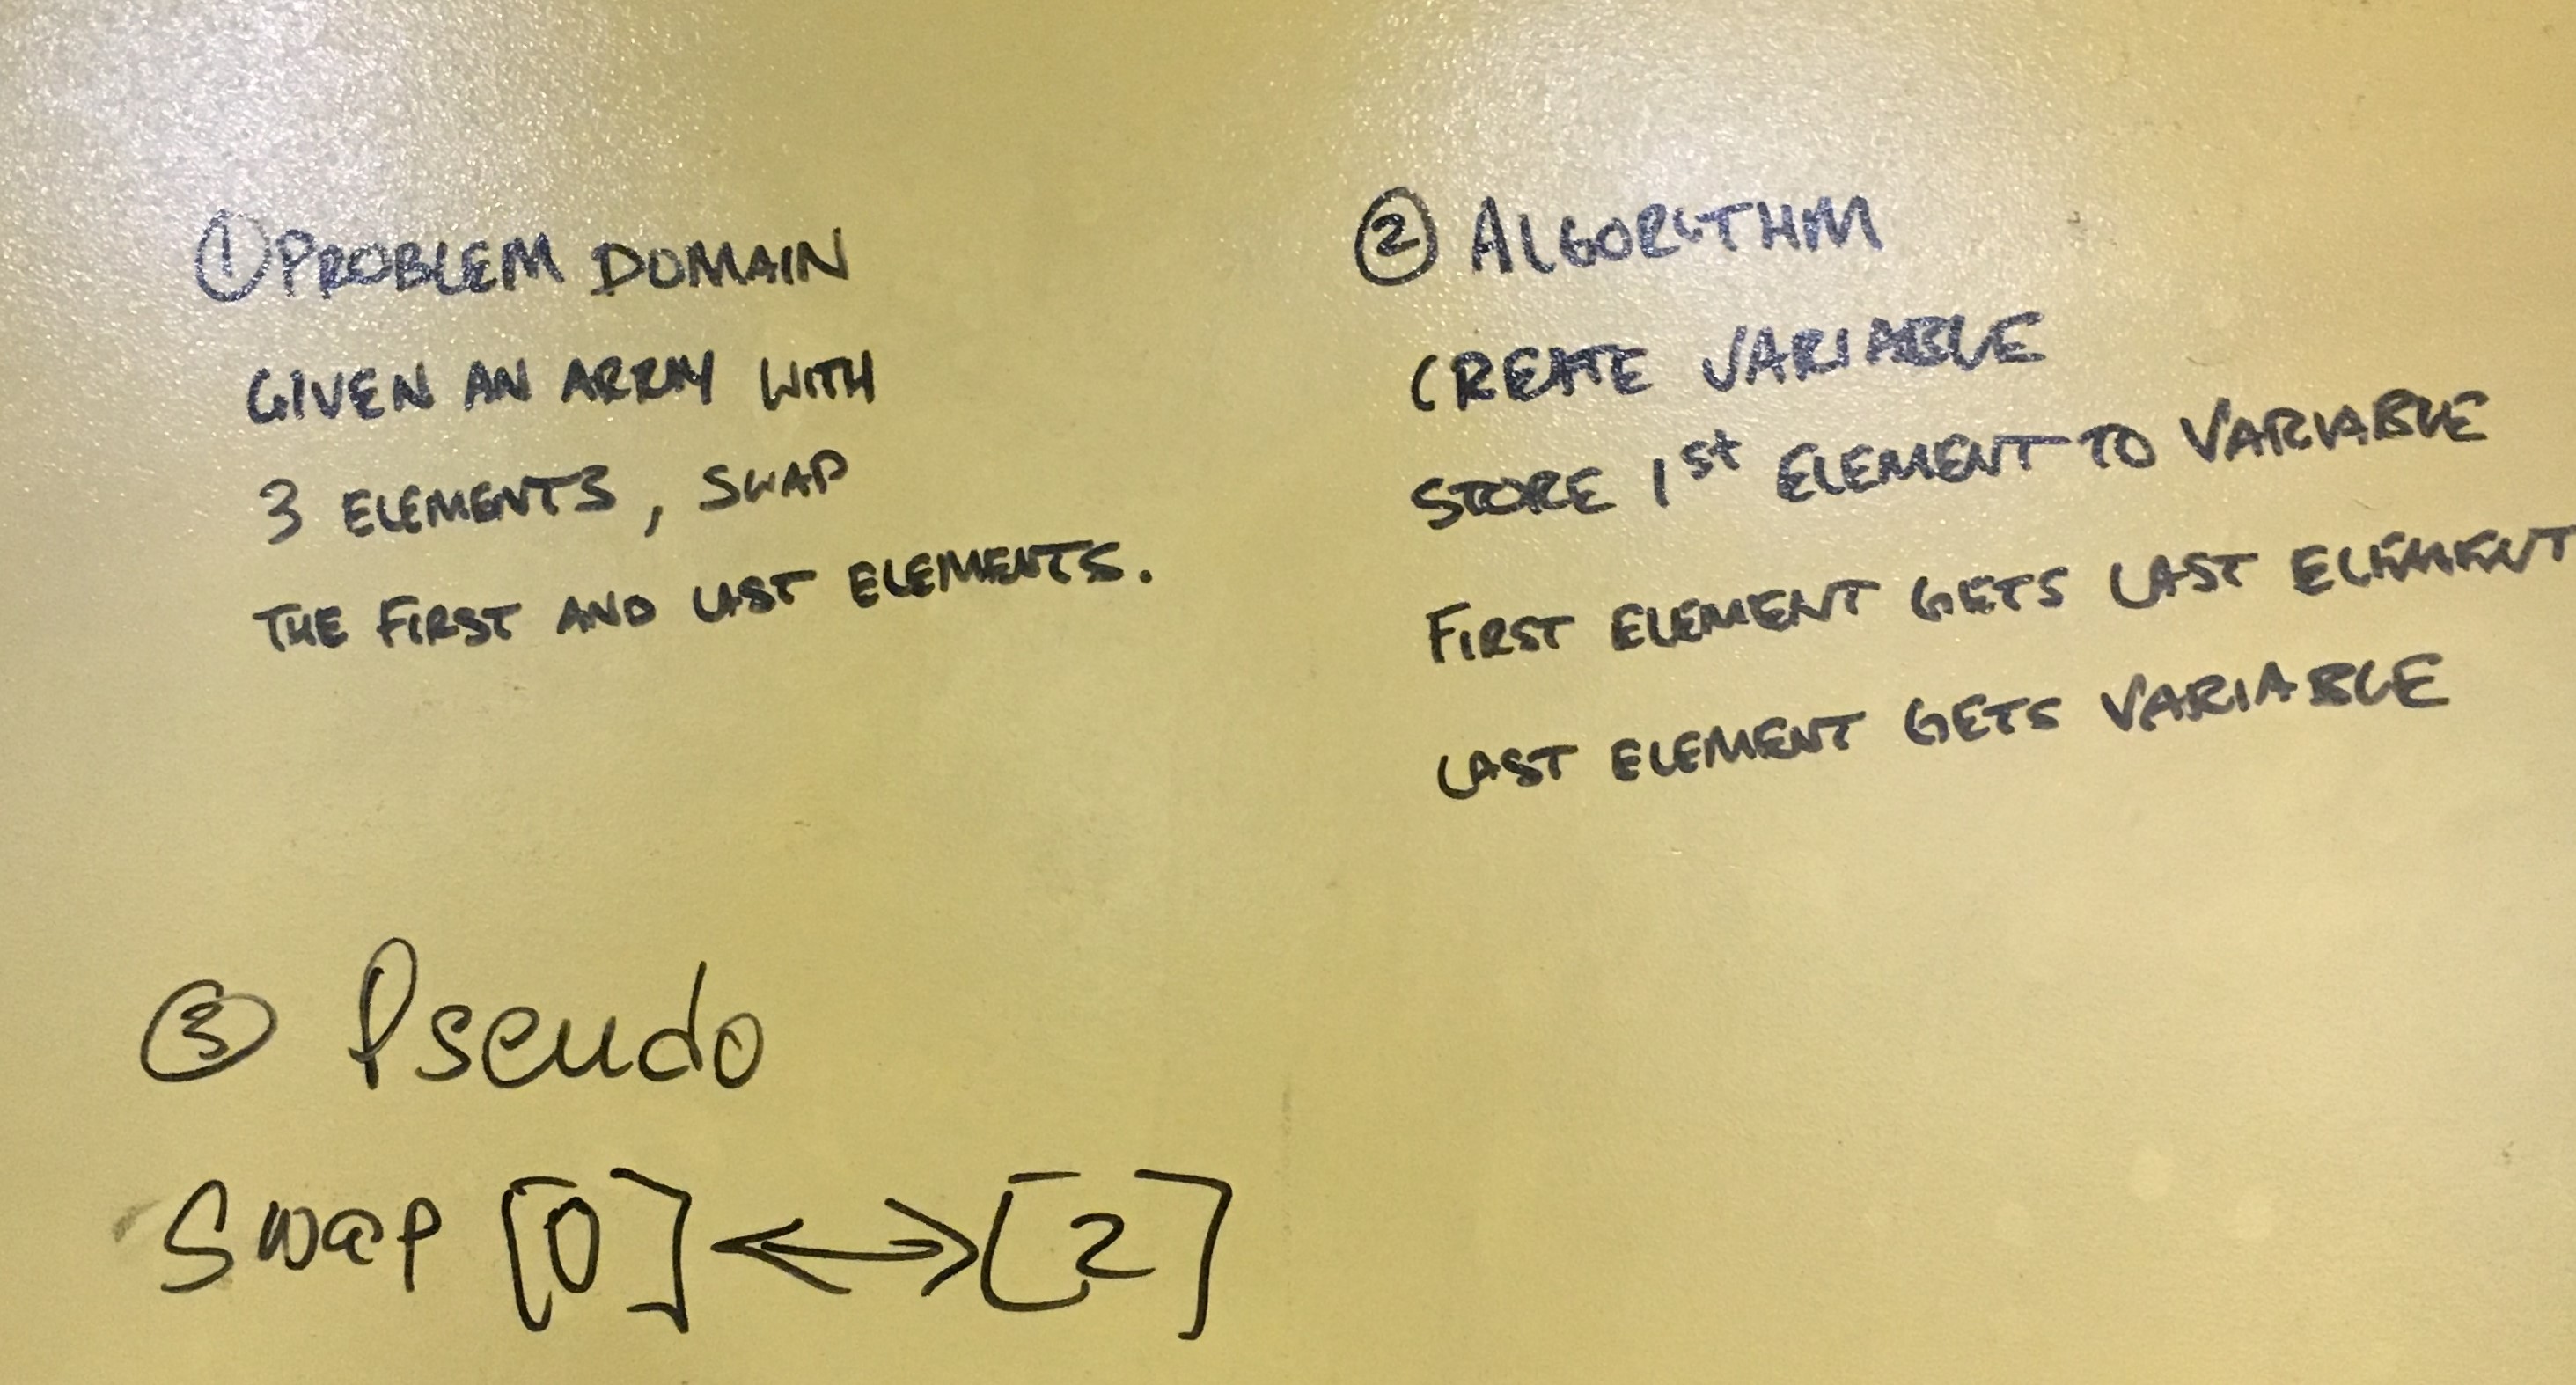 ① PROBLEM DOMAIN
GIVEN AN ARRAY WITH
3 ELEMENTS, SWAP
THE FIRST AND LAST ELEMENTS.
② ALGORITHM
CREATE VARIABLE
STORE 1st ELEMENT TO VARIABLE
FIRST ELEMENT GETS LAST ELEMENT
LAST ELEMENT GETS VARIABLE
③ Pseudo
Swap [0] ↔ [2]